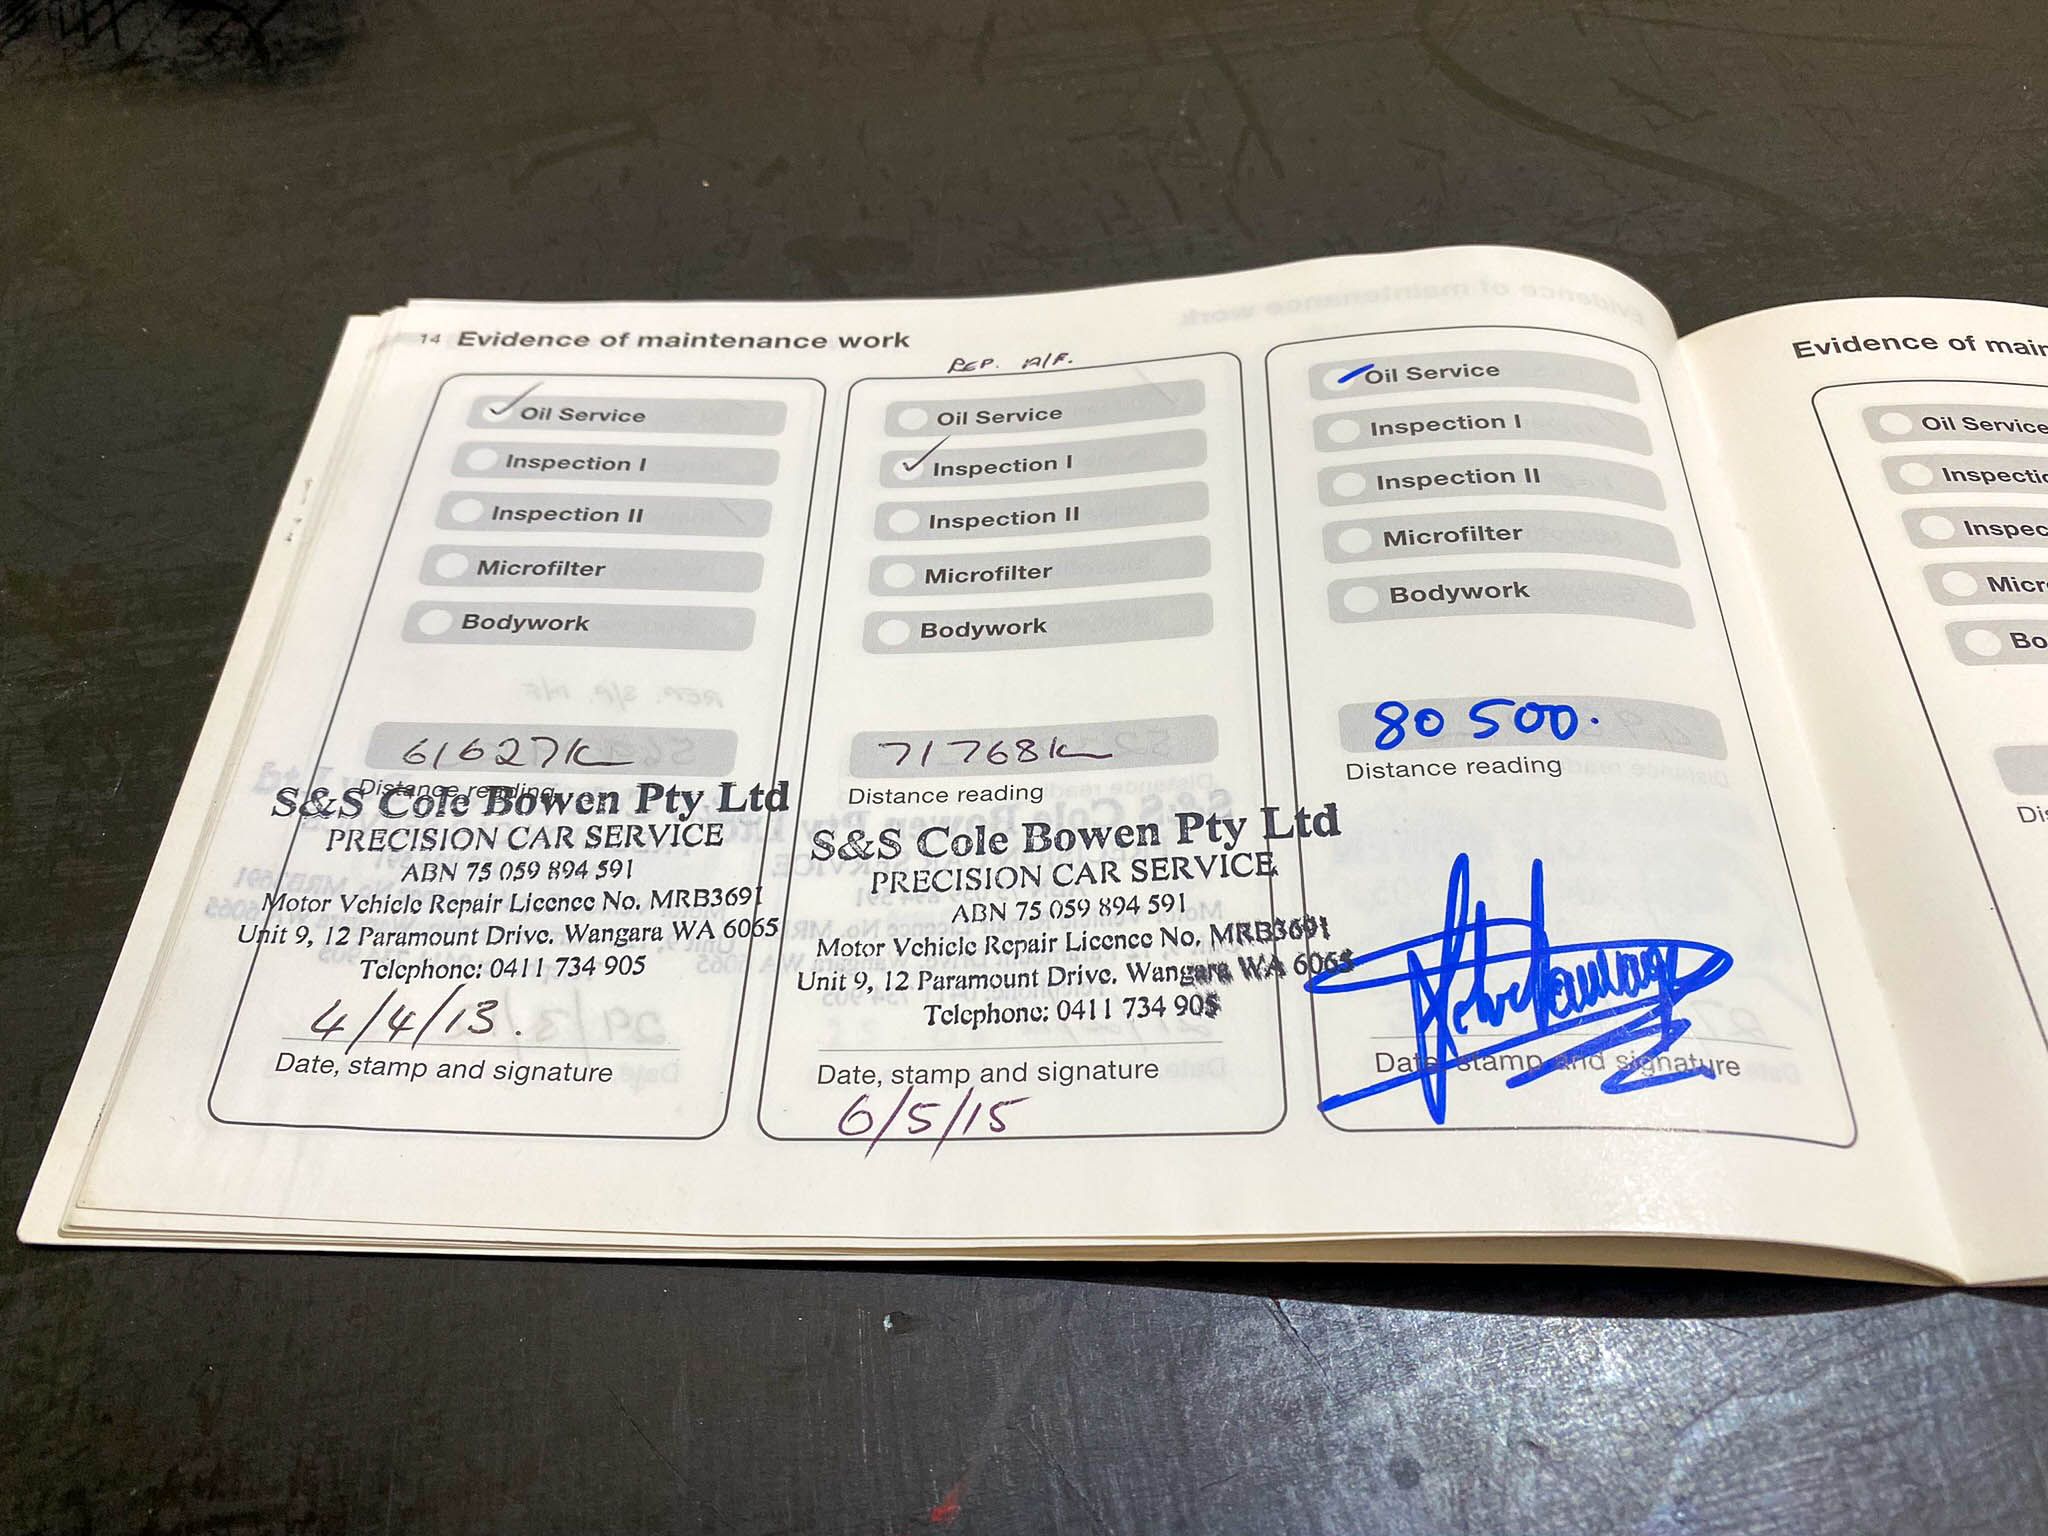 14 Evidence of maintenance work
Oil Service
Inspection I
Inspection II
Microfilter
Bodywork
61627k
Distance reading
S&S Cole Bowen Pty Ltd
PRECISION CAR SERVICE
ABN 75 059 894 591
Motor Vehicle Repair Licence No. MRB3691
Unit 9, 12 Paramount Drive. Wangara WA 6065
Telephone: 0411 734 905
4/4/13.
Date, stamp and signature
REP. A/F.
Oil Service
Inspection I
Inspection II
Microfilter
Bodywork
71768k
Distance reading
S&S Cole Bowen Pty Ltd
PRECISION CAR SERVICE
ABN 75 059 894 591
Motor Vehicle Repair Licence No. MRB3691
Unit 9, 12 Paramount Drive. Wangara WA 6065
Telephone: 0411 734 905
Date, stamp and signature
6/5/15
Oil Service
Inspection I
Inspection II
Microfilter
Bodywork
80 500.
Distance reading
Date, stamp and signature
Evidence of main
Oil Service
Inspectio
Inspec
Micr
Bo
Di